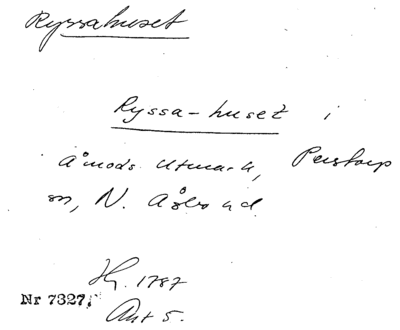 Ryssahuset
Ryssa-huset i
Åmods Utmark, Perstorp
sn, N. Åsbo hd.
Hf. 1787
Nr 7327,
Ant 5.